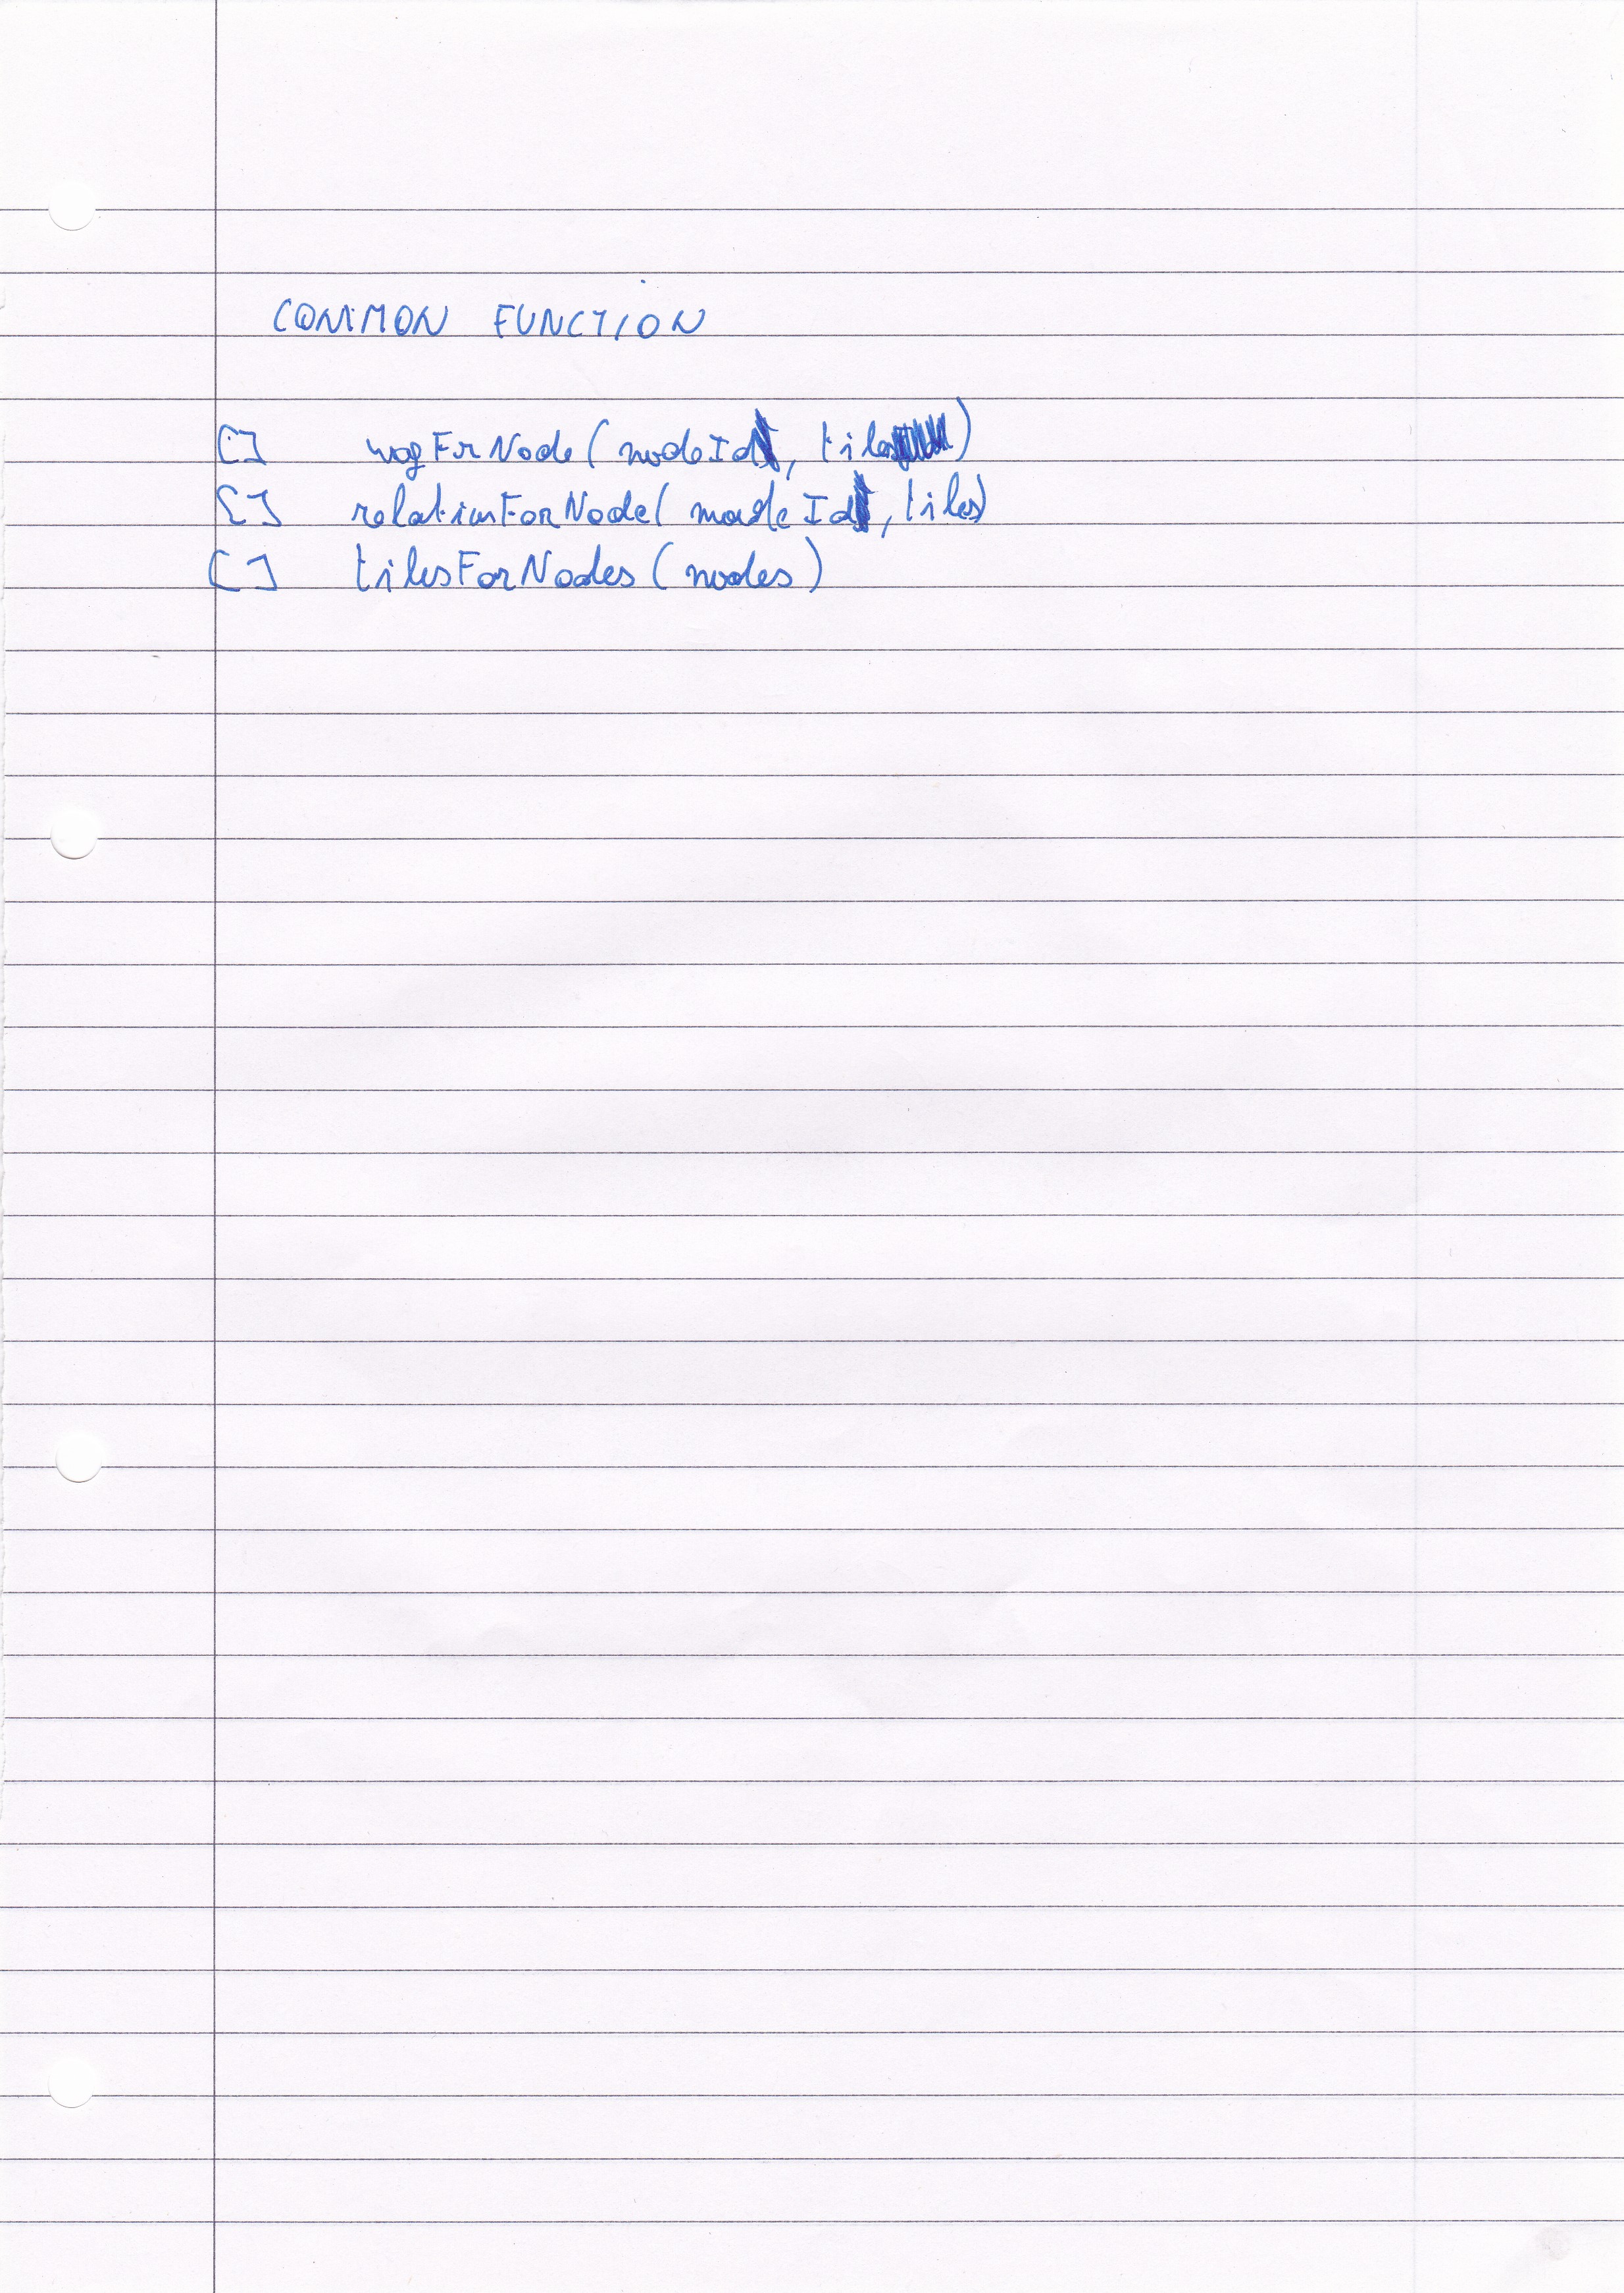 COMMON FUNCTION
[] wayForNode(nodeId, tiles)
[] relationForNode(nodeId, tiles)
[] tilesForNodes(nodes)